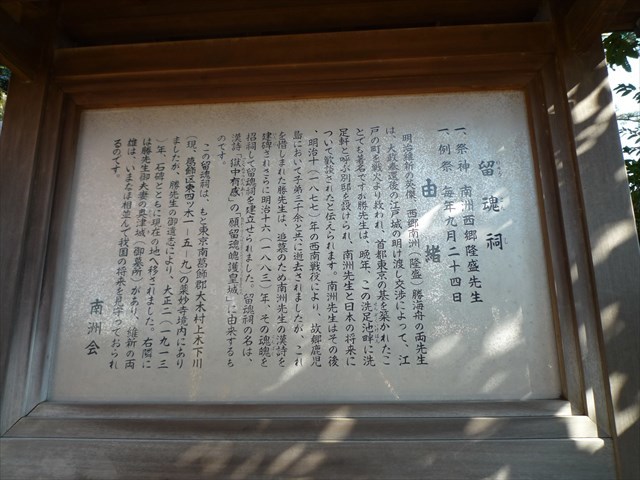 留魂祠
一、祭神 南洲西郷隆盛先生
一、例祭 毎年九月二十四日
由緒
明治維新の英傑、西郷南洲(隆盛)勝海舟の両先生
は、大政奉還後の江戸城の明け渡し交渉によって、江
戸の町を戦火より救われ、首都東京の基を築かれたこ
とても著名ですが勝先生は、晩年、この洗足池畔に洗
足軒と呼ぶ別邸を設けられ、南洲先生と日本の将来に
ついて歓談されたと伝えられます。南洲先生はその後
、明治十(一八七七)年の西南戦役により、故郷鹿児
島において子弟三千余と共に逝去されましたが、これ
を惜しまれた勝先生は、追慕のため南洲先生の漢詩を
建碑されさらに明治十六(一八八三)年、その魂魄を
招祠して留魂祠を建立せられました。留魂祠の名は、
漢詩「獄中有感」の「願留魂魄護皇城」に由来するも
のです。
この留魂祠は、もと東京南葛飾郡大木村上木下川
(現、葛飾区東四ツ木1-5-9)の薬妙寺境内にあり
ましたが、勝先生の御遺志により、大正二(一九一三
)年、石碑とともに現在の地へ移されました。右隣に
は勝先生御夫妻の奥津城(御墓所)があり、維新の両
雄は、いまなほ相並んで我国の将来を見守っておられ
るのです。
南洲会